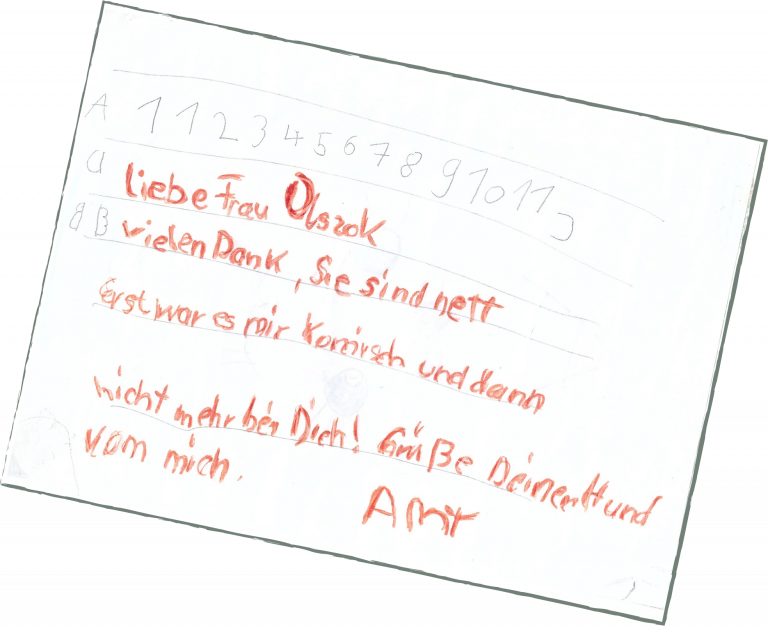 A 1 1 2 3 4 5 6 7 8 9 10 11
a liebe Frau Olszok
B vielen Dank, Sie sind nett
Erst war es mir Komisch und dann
nicht mehr bei Dich! Grüße Deinen Hund
vom mich.
Amr